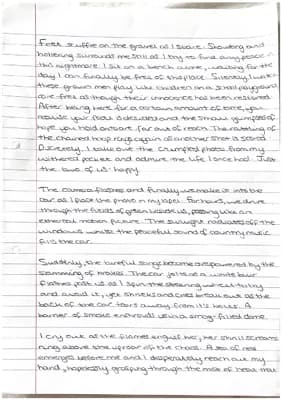 Feet shuffle on the gravel as I stare. Shouting and
hollering surround me still as I try to find any peace in
this nightmare. I sit on a bench alone, waiting for the
day I can finally be free of this place. Silently I watch
these grown men play like children on a school playground
care free as though their innocence has been restored.
After being here for a certain amount of time, you
realise your fate is decided and the small glimpses of
hope you hold onto are far out of reach. The rattling of
the chained hoop rings again as another shot is scored.
Discretely I take out the crumpled photo from my
withered pocket and admire the life I once had. Just
the two of us: happy.
The camera flashes and finally we make it into the
car as I place the photo in my lapel. For hours, we drive
through the fields of green beside us, passing like an
external motion picture. The sunlight radiates off the
windows whilst the peaceful sound of country music
fills the car.
Suddenly, the blissful songs become overpowered by the
slamming of brakes. The car jolts as a white blur
flashes past us as I spin the steering wheel to try
and avoid it, yet shrieks and cries break out as the
back of the car tears away from it's
banner of smoke enshrouds us in a smog-filled dome.
I cry out as the flames engulf her, her shrill screams
rung above the uproar of the chaos. A sea of red
emerges before me and I desperately reach out my
hand, hopelessly grasping through the mist of heat that